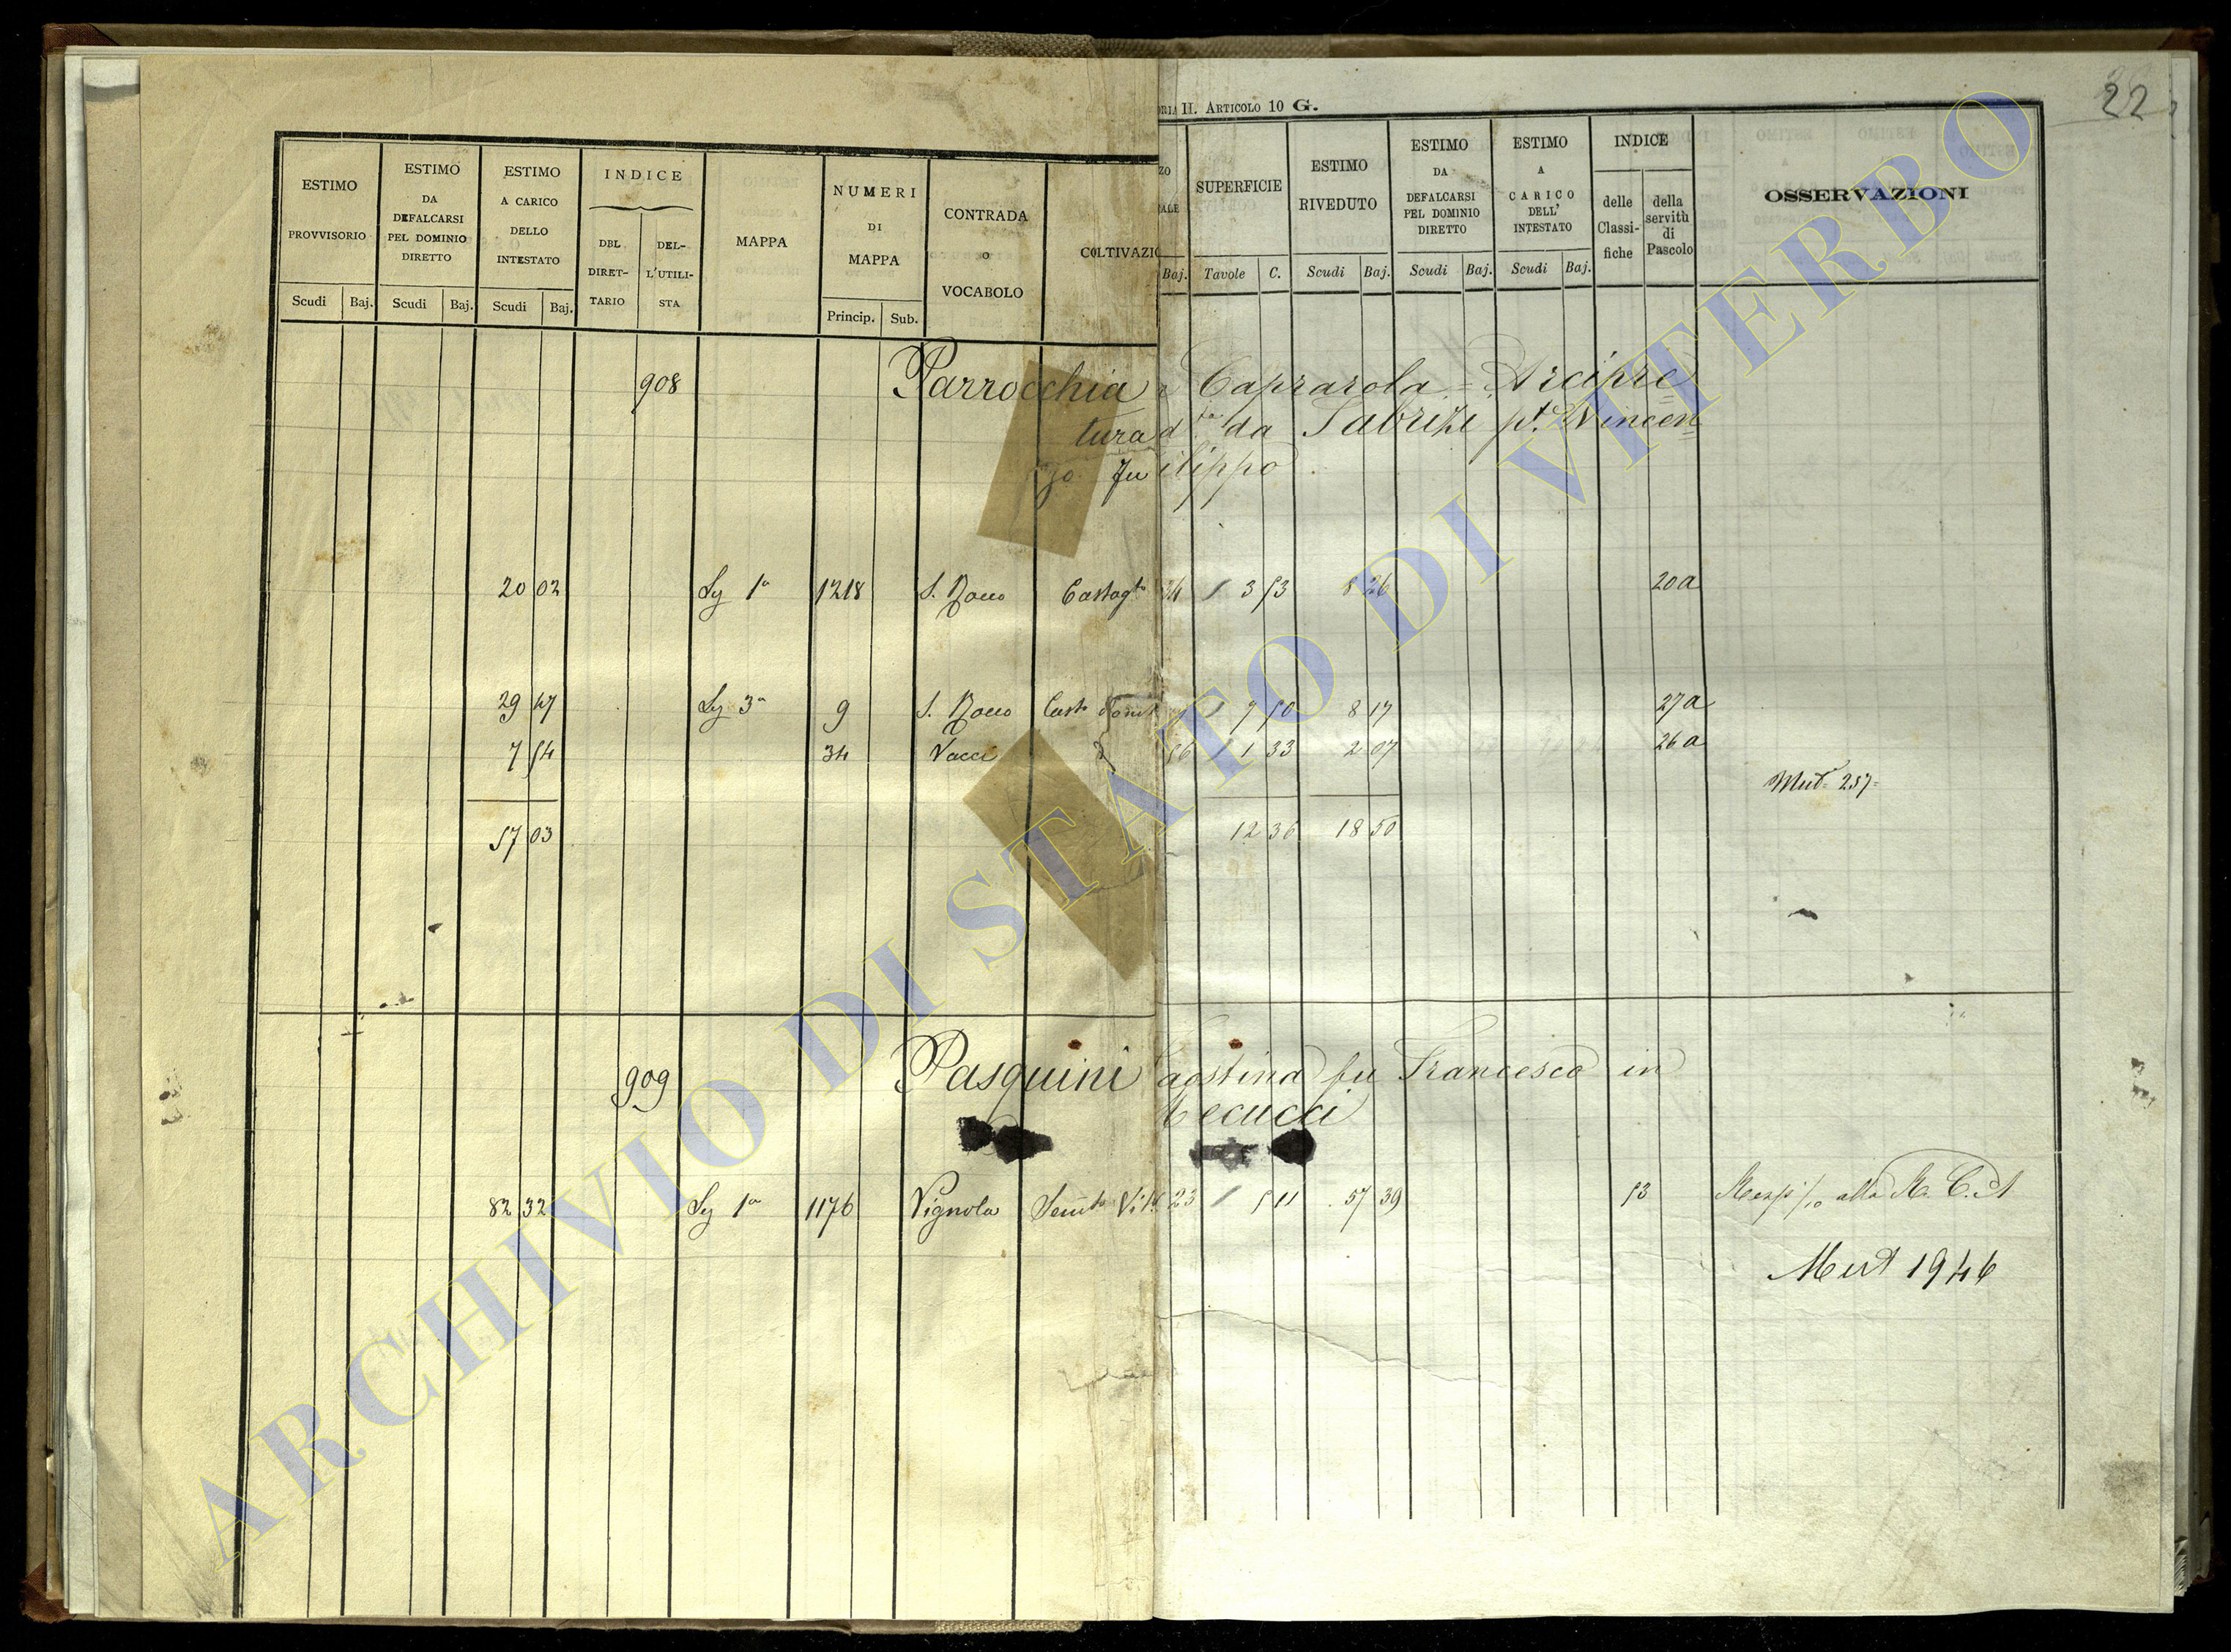 22
II. ARTICOLO 10 G.
ESTIMO PROVVISORIO
Scudi Baj.
ESTIMO DA DEFALCARSI PEL DOMINIO DIRETTO
Scudi Baj.
ESTIMO A CARICO DELLO INTESTATO
Scudi Baj.
INDICE
DEL DIRET- TARIO
DEL- L'UTILI- STA
MAPPA
NUMERI DI MAPPA
Princip. Sub.
CONTRADA O VOCABOLO
COLTIVAZIO
Baj.
SUPERFICIE
Tavole C.
ESTIMO RIVEDUTO
Scudi Baj.
ESTIMO DA DEFALCARSI PEL DOMINIO DIRETTO
Scudi Baj.
ESTIMO A CARICO DELL' INTESTATO
Scudi Baj.
INDICE
delle Classi- fiche
della servitù di Pascolo
OSSERVAZIONI
908 Parrocchia Caprarola = Arcipre
tura da Sabrizi Vincen
zo fu ilippo
20 02 1a 1218 S. Rocco Castagto 3 53 8 26 20a
29 47 3a 9 S. Rocco Casto 7 50 8 17 27a
7 54 34 Vacci 1 33 2 07 26a
Mut. 257
57 03 12 36 18 50
909 Pasquini agostina fu Francesco in
ecucci
82 32 1a 1176 Vignola Semto Vit 23 5 11 57 39 53 alla
Mut 1946
ARCHIVIO DI STATO DI VITERBO